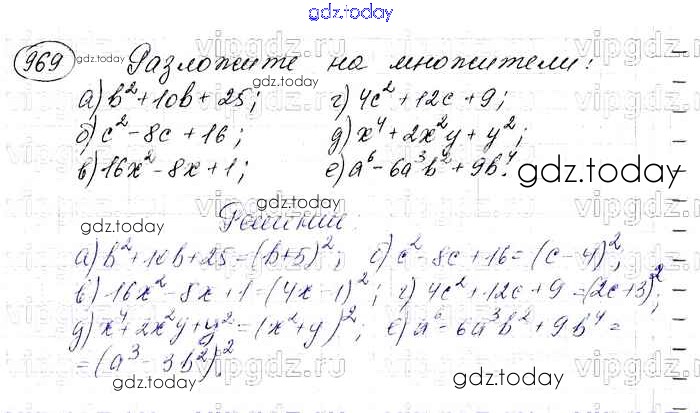 gdz.today
969 gdz.today Разложите на множители:
gdz.today
а) b²+10b+25; г) 4c²+12c+9;
б) c²-8c+16; д) x⁴+2x²y+y²;
в) 16x²-8x+1; е) a⁶-6a³b²+9b⁴.
gdz.today
gdz.today
gdz.today
Решение.
а) b²+10b+25=(b+5)²; б) c²-8c+16=(c-4)²;
в) 16x²-8x+1=(4x-1)²; г) 4c²+12c+9=(2c+3)²;
д) x⁴+2x²y+y²=(x²+y)²; е) a⁶-6a³b²+9b⁴=
=(a³-3b²)².
gdz.today
gdz.today